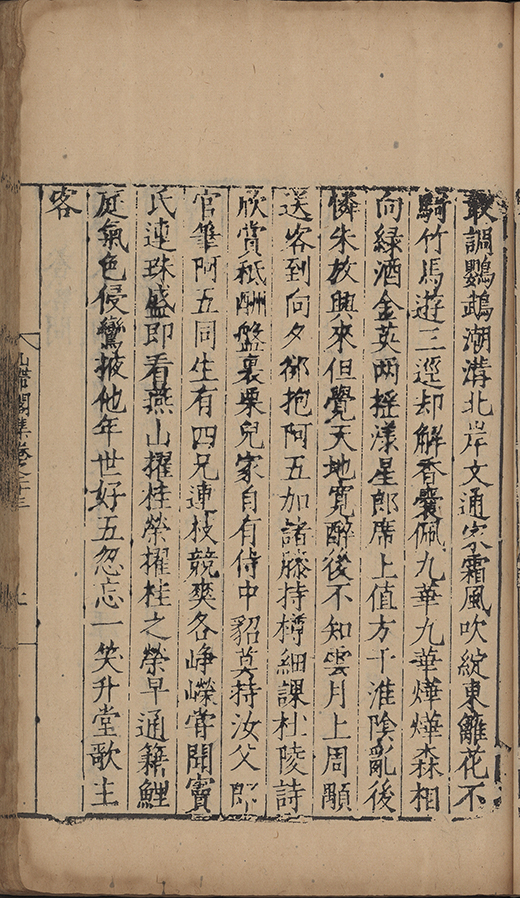 鸚鵡潮溝北岸文通宅霜風吹綻東籬花不
騎竹馬遊三逕却解香囊佩九華九華燁燁森相
向綠酒金英两摇漾星郎席上值方干淮陰亂後
憐朱放興來但覺天地寛醉後不知雲月上周顒
送客到向夕郤抱阿五加諸膝持樽細課杜陵詩
欣賞秪酬盤裏栗兒家自有侍中貂莫持汝父郎
官筆阿五同生有四兄連枝競爽各崢嶸甞聞竇
氏連珠盛即看燕山擢桂榮擢桂之榮早通籍鯉
庭氣色侵鸞掖他年世好五忽忘一笑升堂歌主
客
閣集卷之十三